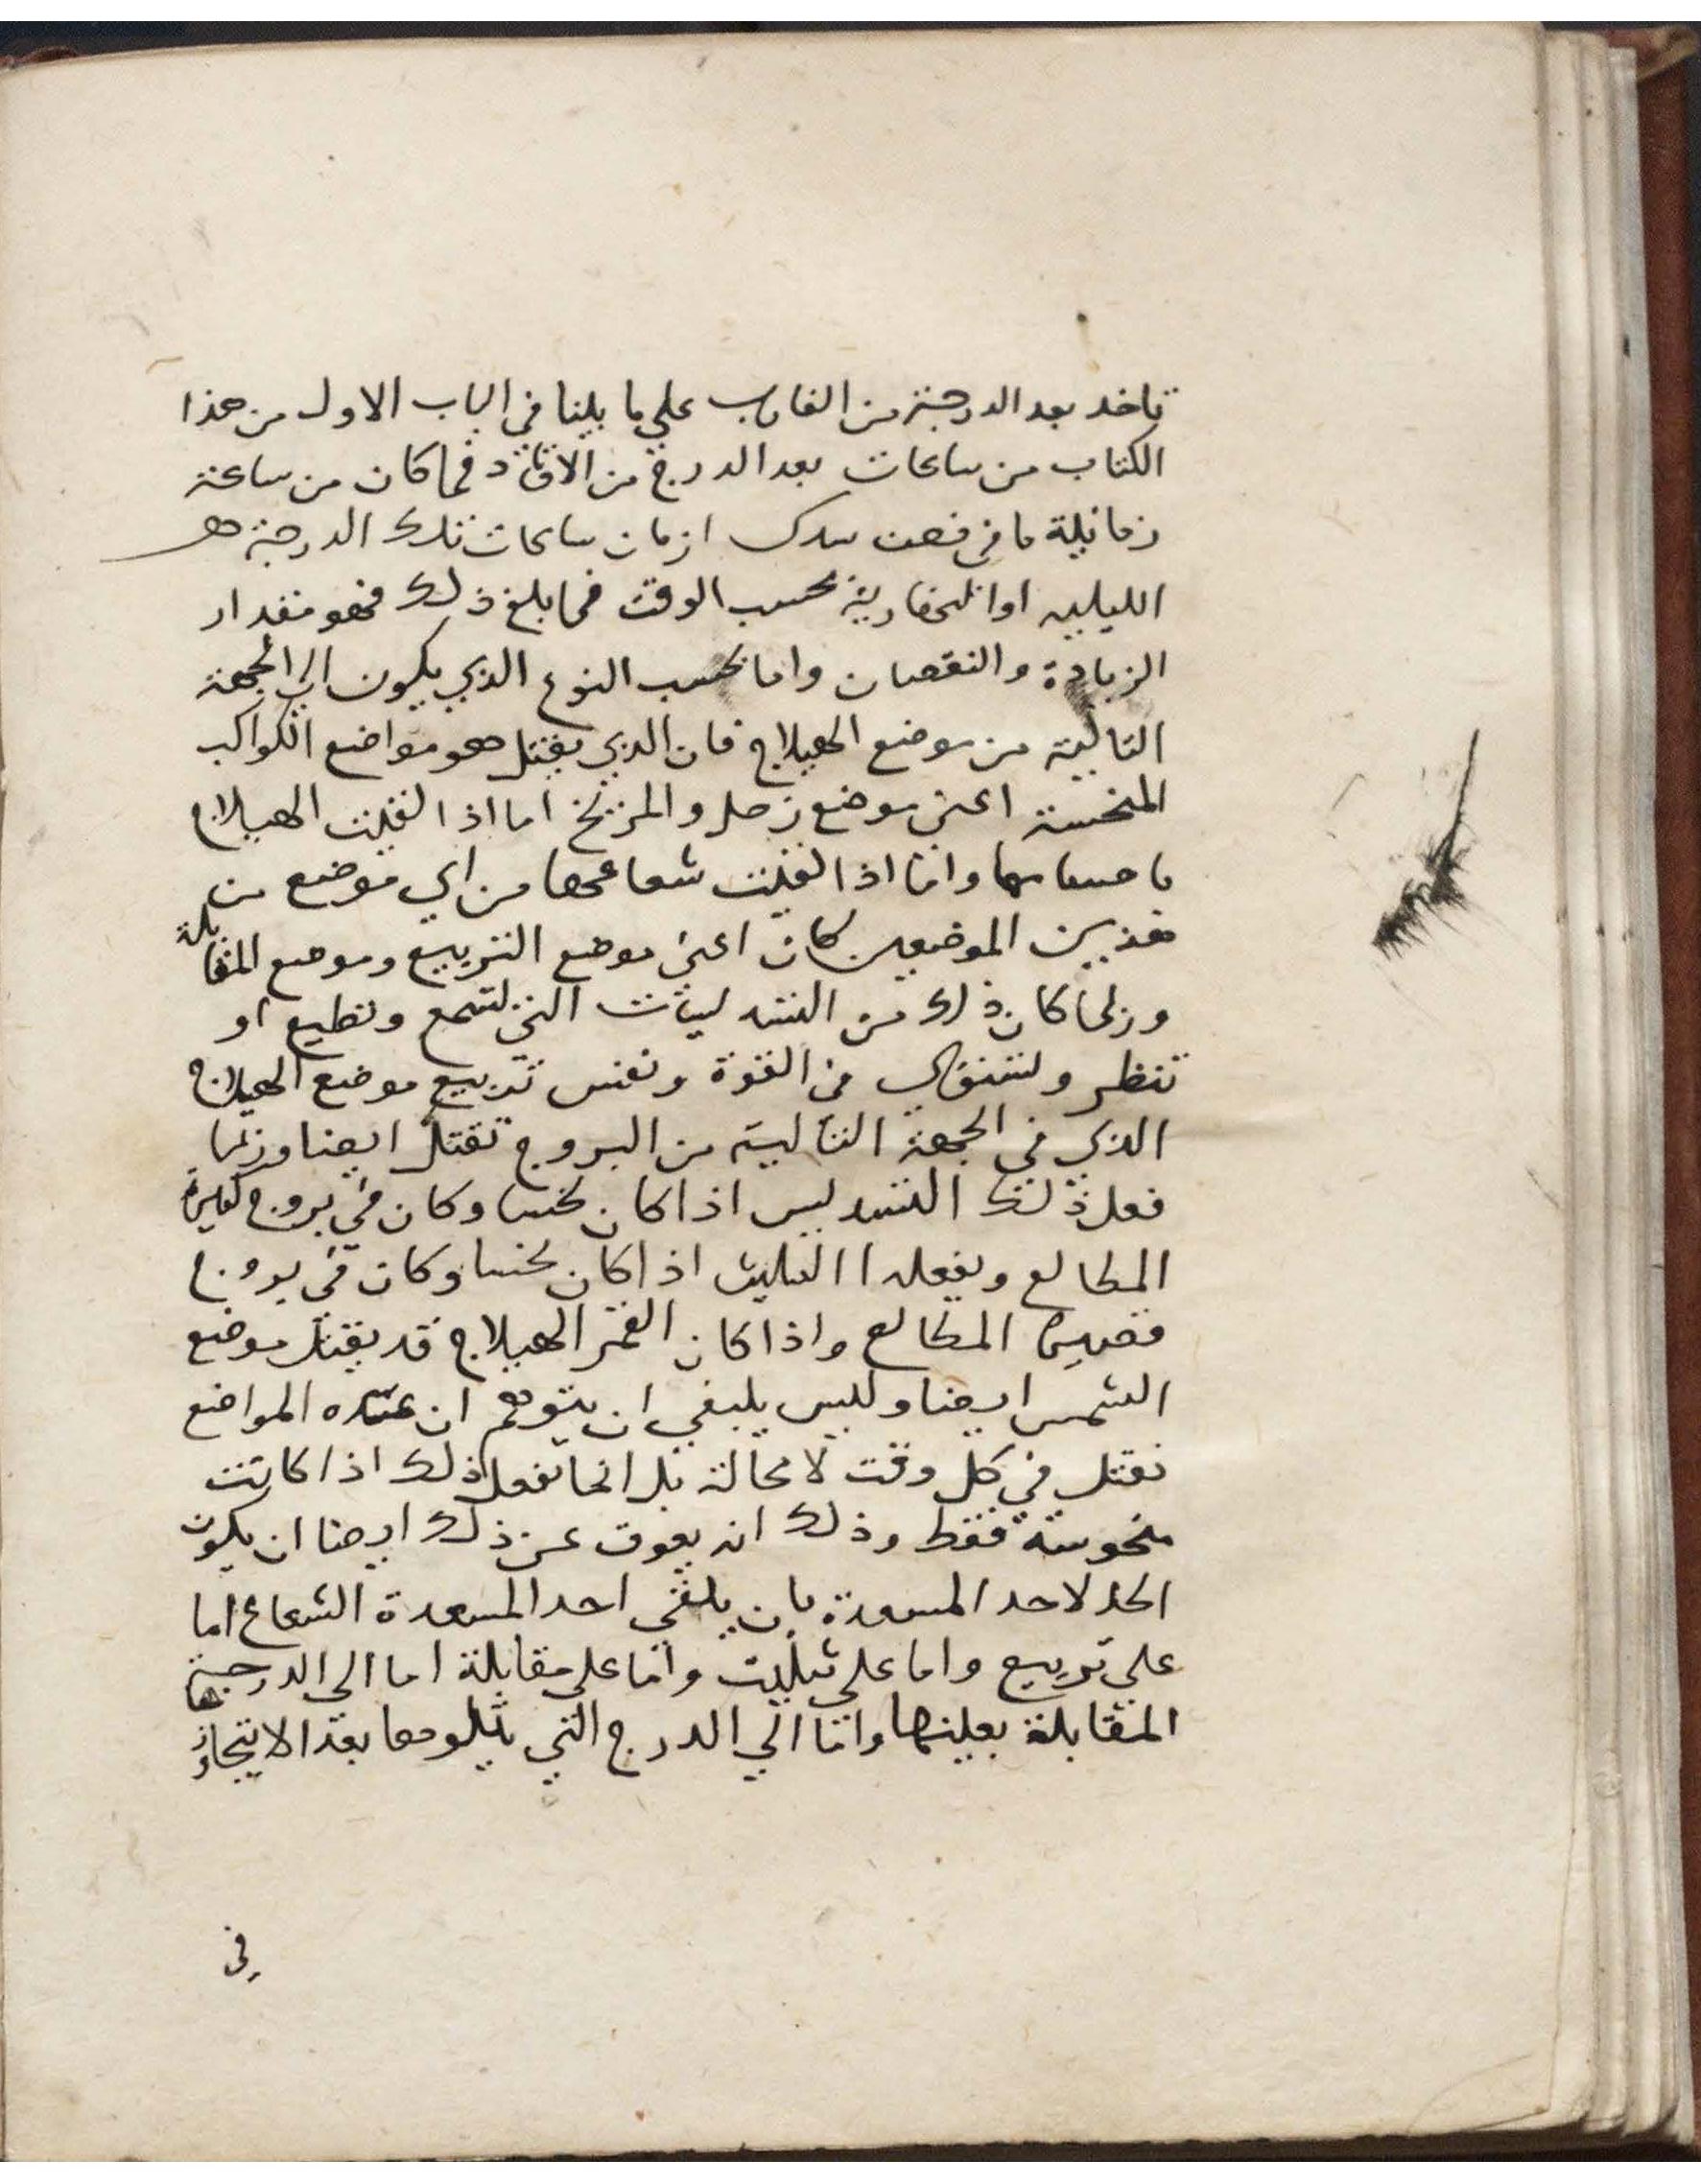 تاخذ بعد الدرجة من الغارب علي ما بينا في الباب الاول من هذا
الكتاب من ساعات بعد الدرج من الاوتاد فما كان من ساعة
زمانية ما في ازمان ساعات تلك الدرجة
الليلية او النهارية بحسب الوقت فما بلغ ذلك فهو مقدار
الزيادة والنقصان واما بحسب النوع الذي يكون الي الجهة
التالية من موضع الهيلاج فان الذي يقتل هو مواضع الكواكب
المنحسة اعني موضع زحل والمريخ اما اذا لقيت الهيلاج
باجسامهما واما اذا لقيت شعاعها من اي موضع من
هذين الموضعين كان اعني موضع التربيع وموضع المقابلة
وربما كان ذلك من التسديسات التي تسمع وتطيع او
تنظر وتستوي في القوة ونفس تربيع موضع الهيلاج
الذي في الجهة التالية من البروج تقتل ايضا وربما
فعل ذلك التسديس اذا كان نحسا وكان في بروج كثيرة
المطالع ويفعله التثليث اذا كان نحسا وكان في بروج
قصيرة المطالع واذا كان القمر الهيلاج قد يقتل موضع
الشمس ايضا وليس ينبغي ان يتوهم ان هذه المواضع
تقتل في كل وقت لا محالة بل انما تفعل ذلك اذا كانت
منحوسة فقط وذلك انه يعوق عن ذلك ايضا ان يكون
الحد لاحد المسعدة بان يلقي احد المسعدة الشعاع اما
علي تربيع واما علي تثليث واما علي مقابلة اما الي الدرجة
المقابلة بعينها واما الي الدرج التي يتلوها بعد الا يتجاوز
في